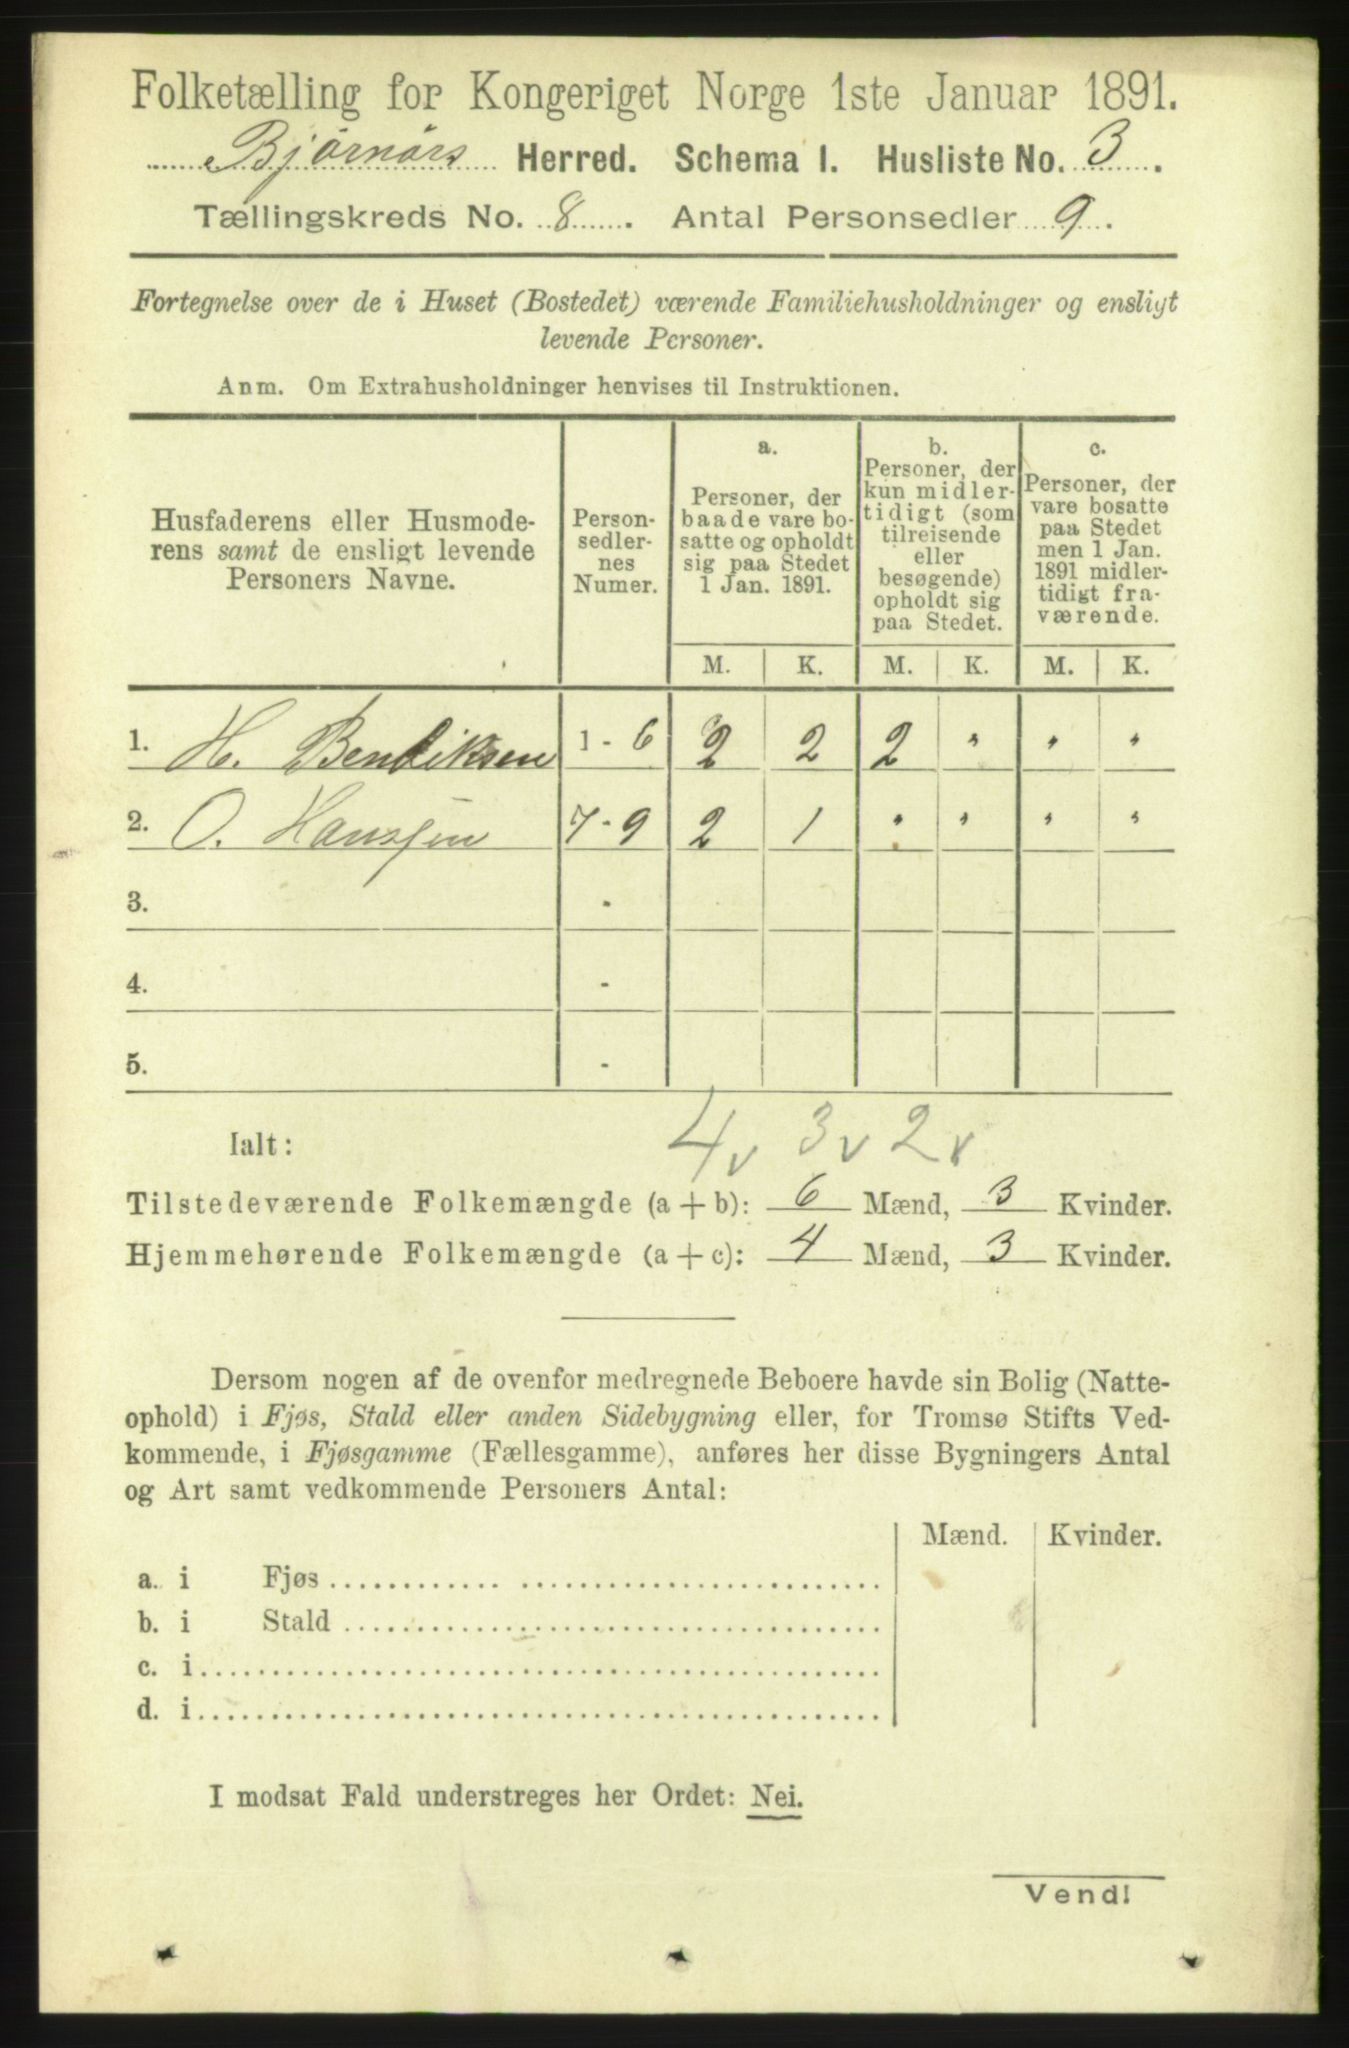 Folketælling for Kongeriget Norge 1ste Januar 1891.
Bjørnørs Herred. Schema I. Husliste No. 3.
Tællingskreds No. 8. Antal Personsedler 9.
Fortegnelse over de i Huset (Bostedet) værende Familiehusholdninger og ensligt
levende Personer.
Anm. Om Extrahusholdninger henvises til Instruktionen.
Husfaderens eller Husmode-
rens samt de ensligt levende
Personers Navne.
Person-
sedler-
nes
Numer.
a.
Personer, der
baade vare bo-
satte og opholdt
sig paa Stedet
1 Jan. 1891.
b.
Personer, der
kun midler-
tidigt (som
tilreisende
eller
besøgende)
opholdt sig
paa Stedet.
c.
Personer, der
vare bosatte
paa Stedet
men 1 Jan.
1891 midler-
tidigt fra-
værende.
M. K. M. K. M. K.
1. H. Bendiksen 1 - 6 2 2 2 " " "
2. O. Hanssen 7 - 9 2 1 " " " "
3. -
4. -
5. -
4 v 3 v 2 v
Ialt:
Tilstedeværende Folkemængde (a + b): 6 Mænd, 3 Kvinder.
Hjemmehørende Folkemængde (a + c): 4 Mænd, 3 Kvinder.
Dersom nogen af de ovenfor medregnede Beboere havde sin Bolig (Natte-
ophold) i Fjøs, Stald eller anden Sidebygning eller, for Tromsø Stifts Ved-
kommende, i Fjøsgamme (Fællesgamme), anføres her disse Bygningers Antal
og Art samt vedkommende Personers Antal:
Mænd. Kvinder.
a. i Fjøs
b. i Stald
c. i
d. i
I modsat Fald understreges her Ordet: Nei.
Vend!